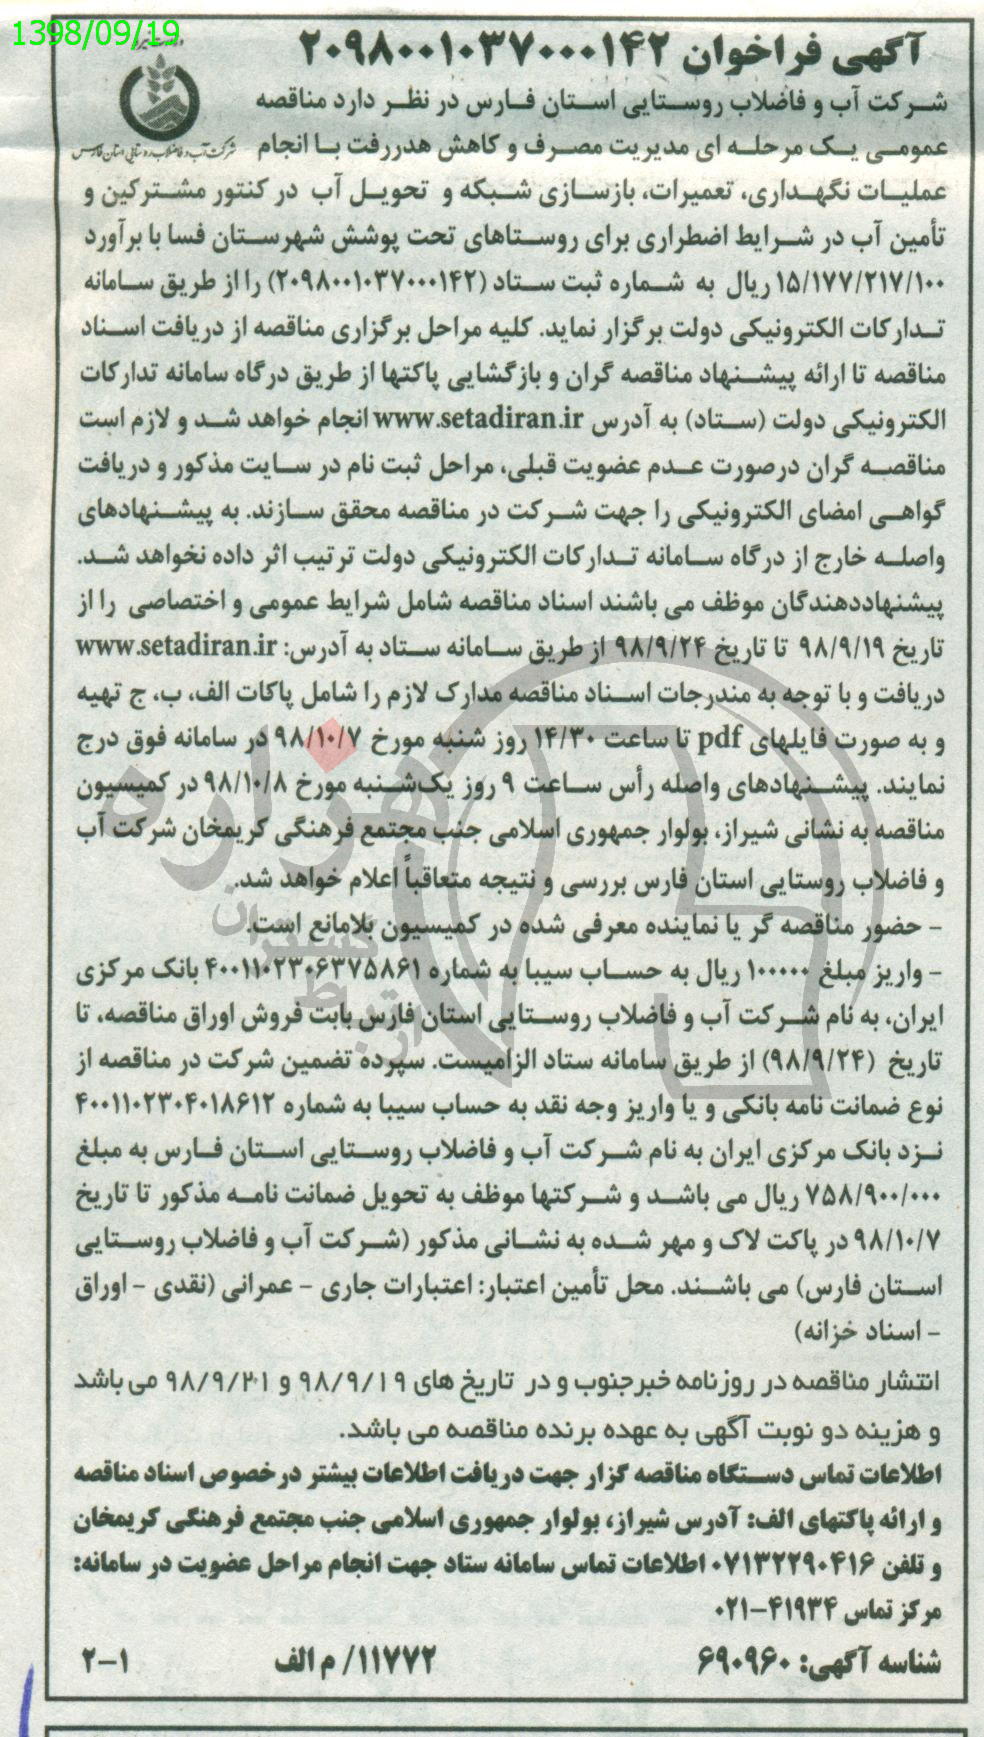 1398/09/19
آگهی فراخوان ۲۰۹۸۰۰۱۰۳۷۰۰۰۱۴۲
شرکت آب و فاضلاب روستایی استان فارس
شرکت آب و فاضلاب روستایی استان فارس در نظر دارد مناقصه
عمومی یک مرحله ای مدیریت مصرف و کاهش هدررفت با انجام
عملیات نگهداری، تعمیرات، بازسازی شبکه و تحویل آب در کنتور مشترکین و
تأمین آب در شرایط اضطراری برای روستاهای تحت پوشش شهرستان فسا با برآورد
۱۵/۱۷۷/۲۱۷/۱۰۰ ریال به شماره ثبت ستاد (۲۰۹۸۰۰۱۰۳۷۰۰۰۱۴۲) را از طریق سامانه
تدارکات الکترونیکی دولت برگزار نماید. کلیه مراحل برگزاری مناقصه از دریافت اسناد
مناقصه تا ارائه پیشنهاد مناقصه گران و بازگشایی پاکتها از طریق درگاه سامانه تدارکات
الکترونیکی دولت (ستاد) به آدرس www.setadiran.ir انجام خواهد شد و لازم است
مناقصه گران درصورت عدم عضویت قبلی، مراحل ثبت نام در سایت مذکور و دریافت
گواهی امضای الکترونیکی را جهت شرکت در مناقصه محقق سازند. به پیشنهادهای
واصله خارج از درگاه سامانه تدارکات الکترونیکی دولت ترتیب اثر داده نخواهد شد.
پیشنهاددهندگان موظف می باشند اسناد مناقصه شامل شرایط عمومی و اختصاصی را از
تاریخ ۹۸/۹/۱۹ تا تاریخ ۹۸/۹/۲۴ از طریق سامانه ستاد به آدرس: www.setadiran.ir
دریافت و با توجه به مندرجات اسناد مناقصه مدارک لازم را شامل پاکات الف، ب، ج تهیه
و به صورت فایلهای pdf تا ساعت ۱۴/۳۰ روز شنبه مورخ ۹۸/۱۰/۷ در سامانه فوق درج
نمایند. پیشنهادهای واصله رأس ساعت ۹ روز یک‌شنبه مورخ ۹۸/۱۰/۸ در کمیسیون
مناقصه به نشانی شیراز، بولوار جمهوری اسلامی جنب مجتمع فرهنگی کریمخان شرکت آب
و فاضلاب روستایی استان فارس بررسی و نتیجه متعاقباً اعلام خواهد شد.
- حضور مناقصه گر یا نماینده معرفی شده در کمیسیون بلامانع است.
- واریز مبلغ ۱۰۰۰۰۰ ریال به حساب سیبا به شماره ۴۰۰۱۱۰۲۳۰۶۳۷۵۸۶۱ بانک مرکزی
ایران، به نام شرکت آب و فاضلاب روستایی استان فارس بابت فروش اوراق مناقصه، تا
تاریخ (۹۸/۹/۲۴) از طریق سامانه ستاد الزامیست. سپرده تضمین شرکت در مناقصه از
نوع ضمانت نامه بانکی و یا واریز وجه نقد به حساب سیبا به شماره ۴۰۰۱۱۰۲۳۰۴۰۱۸۶۱۲
نزد بانک مرکزی ایران به نام شرکت آب و فاضلاب روستایی استان فارس به مبلغ
۷۵۸/۹۰۰/۰۰۰ ریال می باشد و شرکتها موظف به تحویل ضمانت نامه مذکور تا تاریخ
۹۸/۱۰/۷ در پاکت لاک و مهر شده به نشانی مذکور (شرکت آب و فاضلاب روستایی
استان فارس) می باشند. محل تأمین اعتبار: اعتبارات جاری - عمرانی (نقدی - اوراق
- اسناد خزانه)
انتشار مناقصه در روزنامه خبرجنوب و در تاریخ های ۹۸/۹/۱۹ و ۹۸/۹/۲۱ می باشد
و هزینه دو نوبت آگهی به عهده برنده مناقصه می باشد.
اطلاعات تماس دستگاه مناقصه گزار جهت دریافت اطلاعات بیشتر درخصوص اسناد مناقصه
و ارائه پاکتهای الف: آدرس شیراز، بولوار جمهوری اسلامی جنب مجتمع فرهنگی کریمخان
و تلفن ۰۷۱۳۲۲۹۰۴۱۶ اطلاعات تماس سامانه ستاد جهت انجام مراحل عضویت در سامانه:
مرکز تماس ۴۱۹۳۴-۰۲۱
شناسه آگهی: ۶۹۰۹۶۰ ۱۱۷۷۲/ م الف ۲-۱